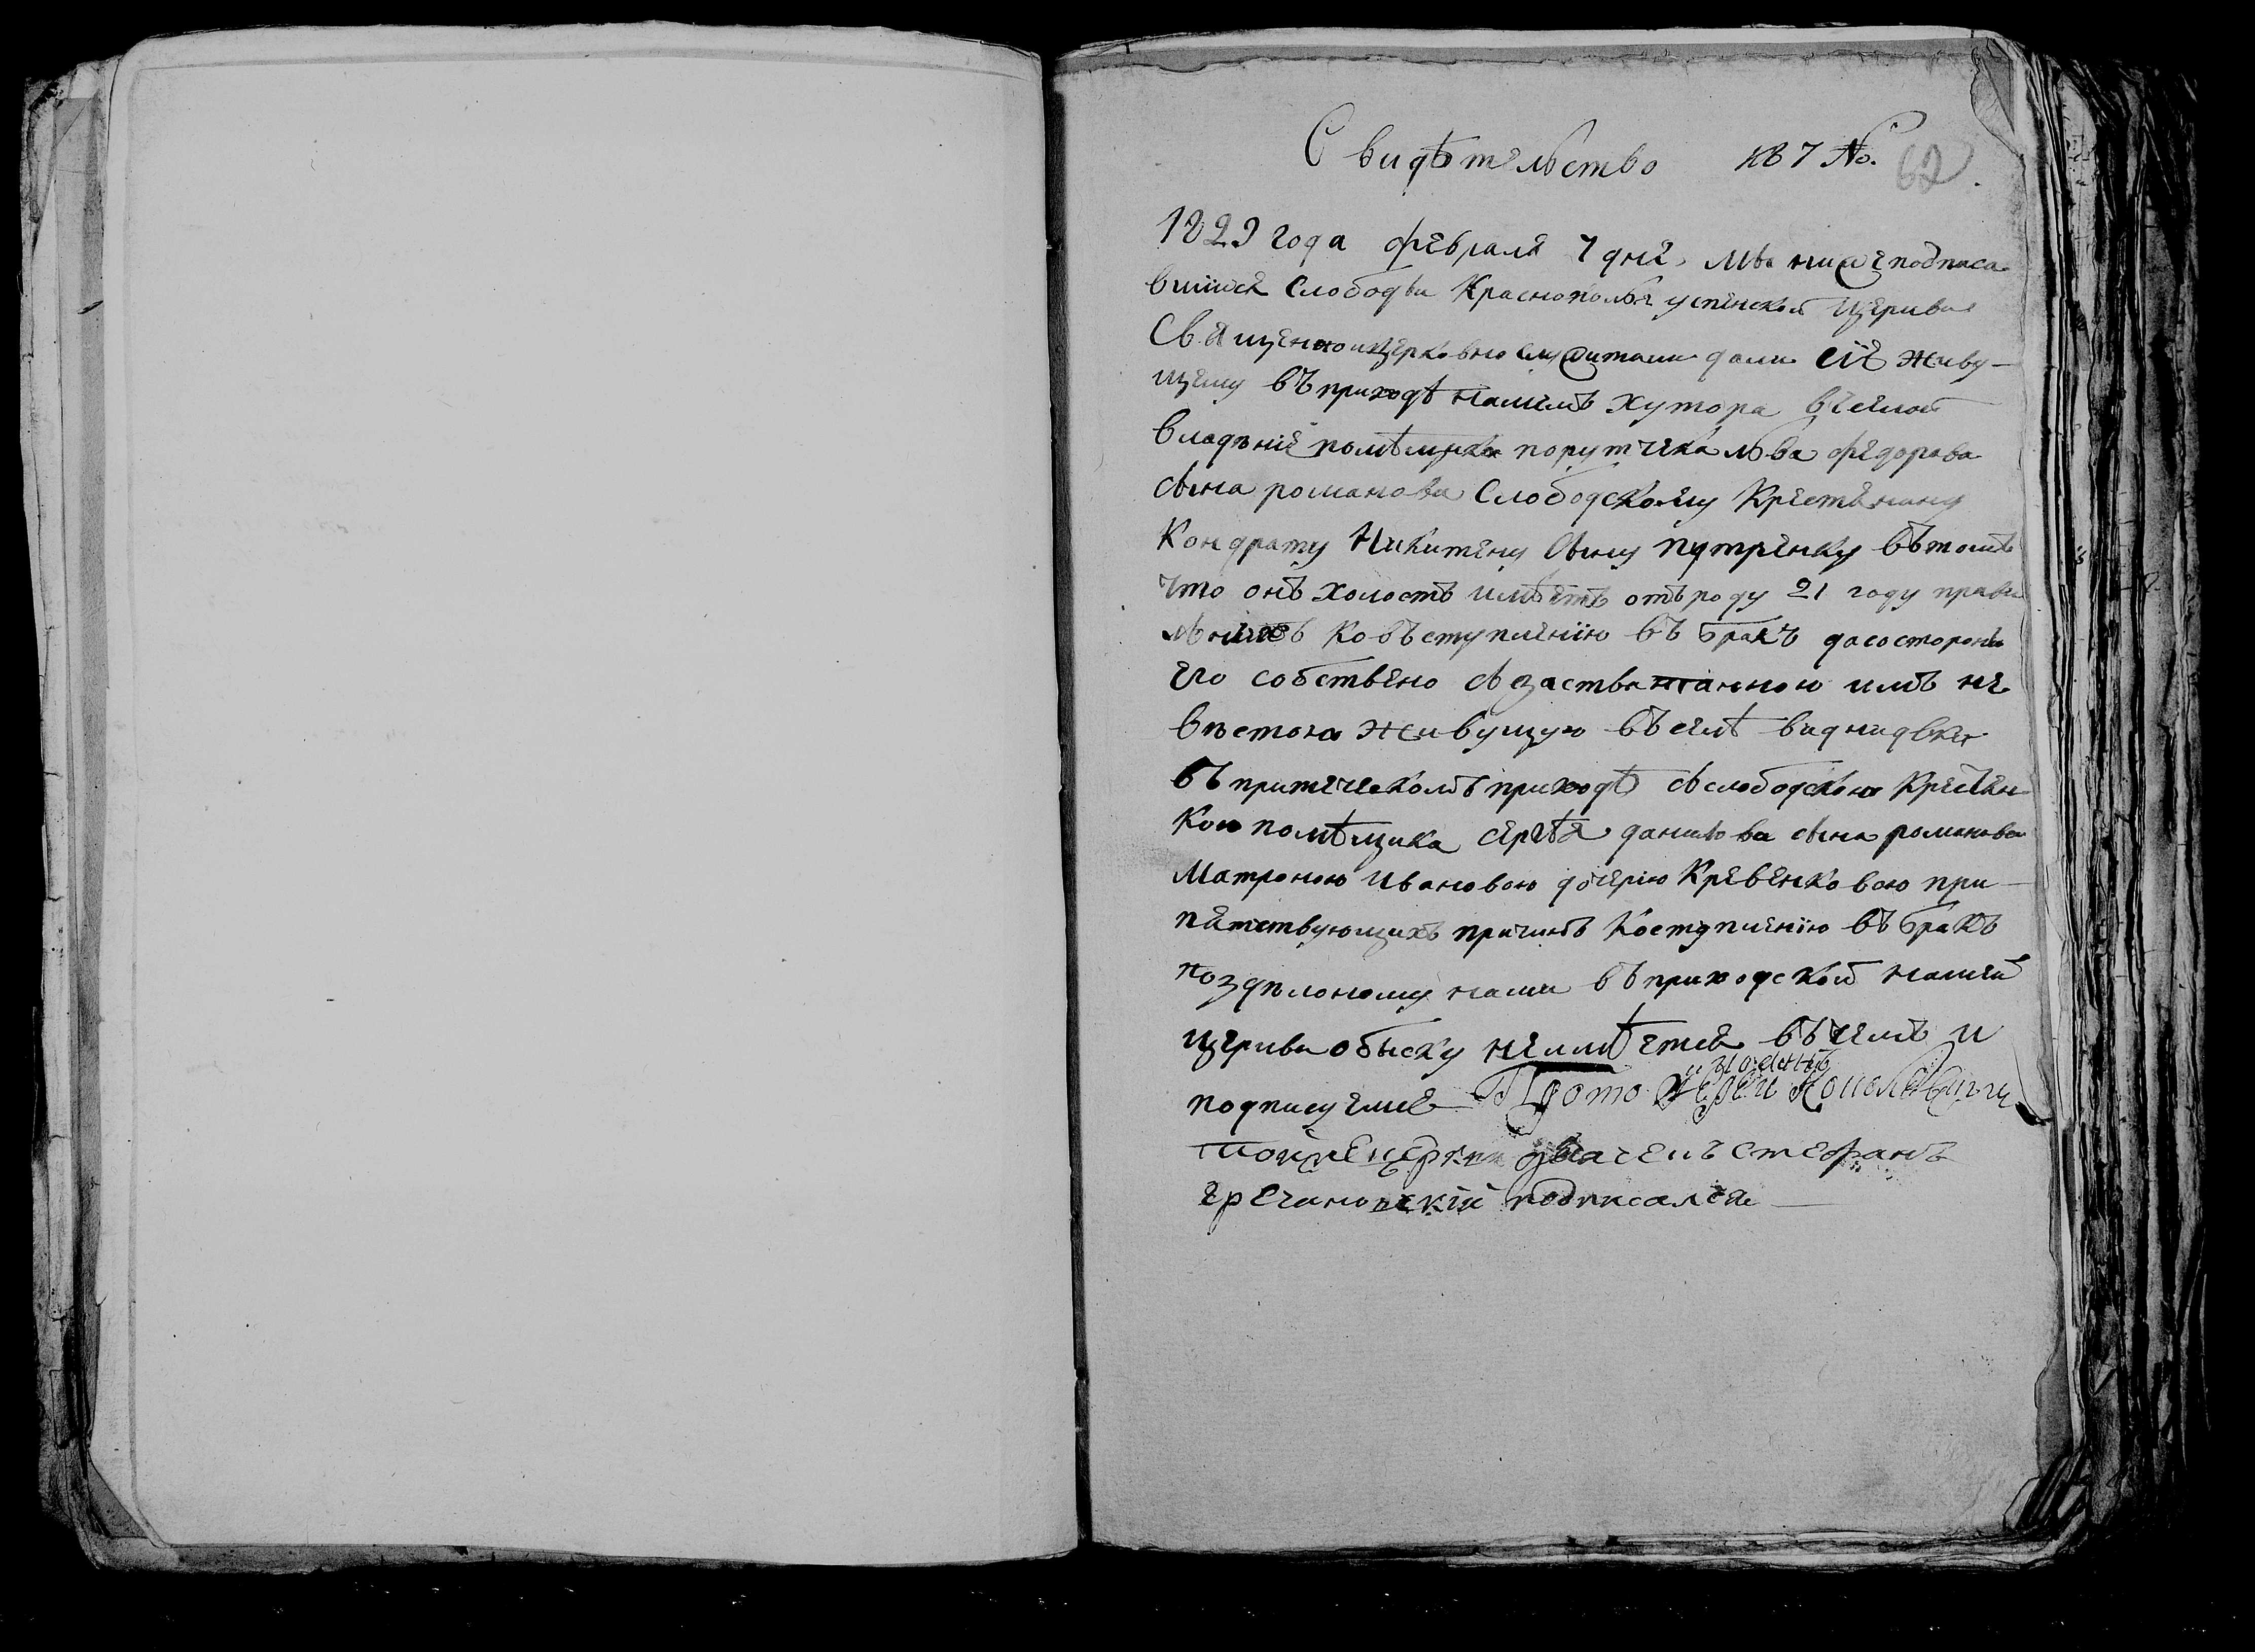 Свидѣтельство къ 7 №. 62
1829 года февраля 7 дня, мы нижеподписа
вшіися Слободы Краснополья успенской Церквы
Священоицерковно служители дали сіе живу-
щему въ приходѣ нашемъ хутора
владенія помѣщика порутчека льва федорова
сына романова Слободскому Крестянину
Кондрату Никитину сыну путренку въ томъ
что онъ холостъ имѣетъ отъ роду 21 году
ко въступленію въ бракъ сосстороны
его собствено имъ не
вестою живущую въ селѣ
въ приходѣ слободскою Крестян
кою помѣщика сергѣя данилова сына романова
Матроною Ивановою дочерію Кревенковою при-
пятствующихъ причинъ Коступленію въ бракъ
позделоному нами въ приходской нашей
церквы обыску неимѣется въ чемъ и
подписуемся Протоіерей
тойже церкви дьячекъ стефанъ
гречановскій подписался